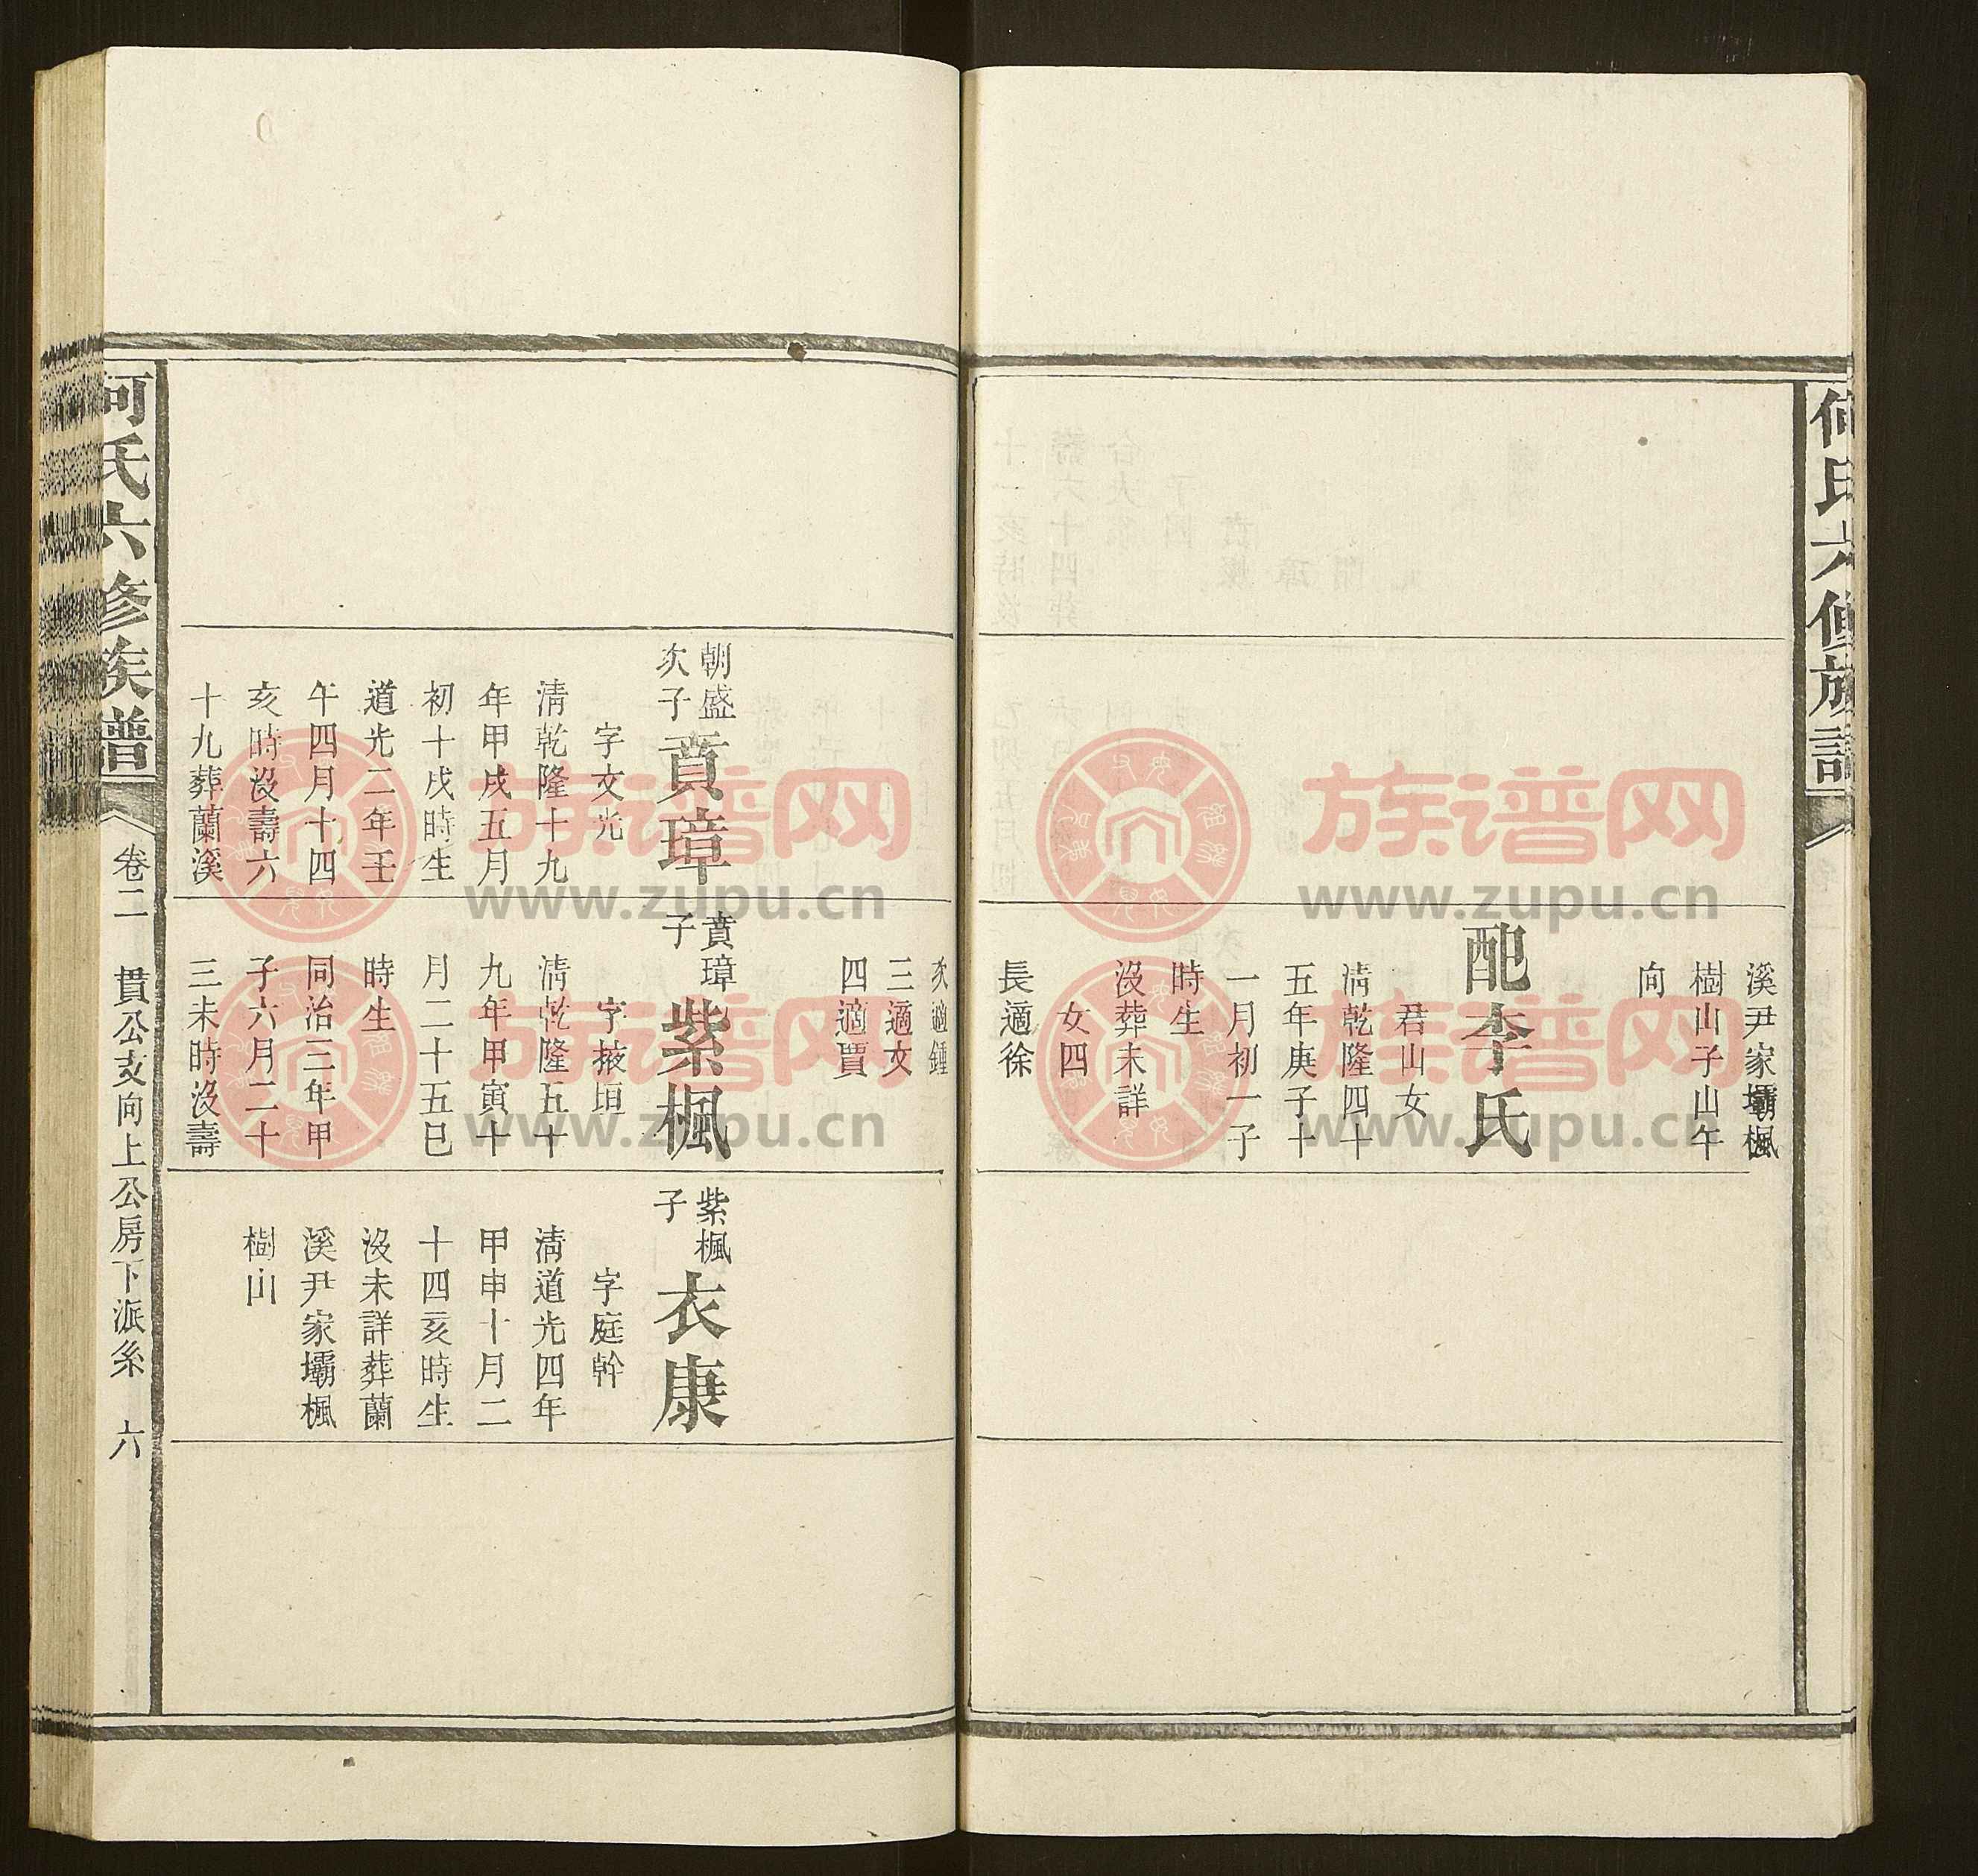 何氏六修族譜
溪尹家壩楓
樹山子山午
向
配李氏
君山女
清乾隆四十
五年庚子十
一月初一子
時生
沒葬未詳
女四
長適徐
次適鍾
三適文
四適賈
朝盛
次子
賁璋
字文光
清乾隆十九
年甲戌五月
初十戌時生
道光二年壬
午四月十四
亥時沒壽六
十九葬蘭溪
賁璋
子
紫楓
字掖垣
清乾隆五十
九年甲寅十
月二十五巳
時生
同治三年甲
子六月二十
三未時沒壽
紫楓
子
衣康
字庭幹
清道光四年
甲申十月二
十四亥時生
沒未詳葬蘭
溪尹家壩楓
樹山
何氏六修族譜
卷二
貫公支向上公房下派系
六
族谱网
www.zupu.cn
族谱网
www.zupu.cn
族谱网
www.zupu.cn
族谱网
www.zupu.cn